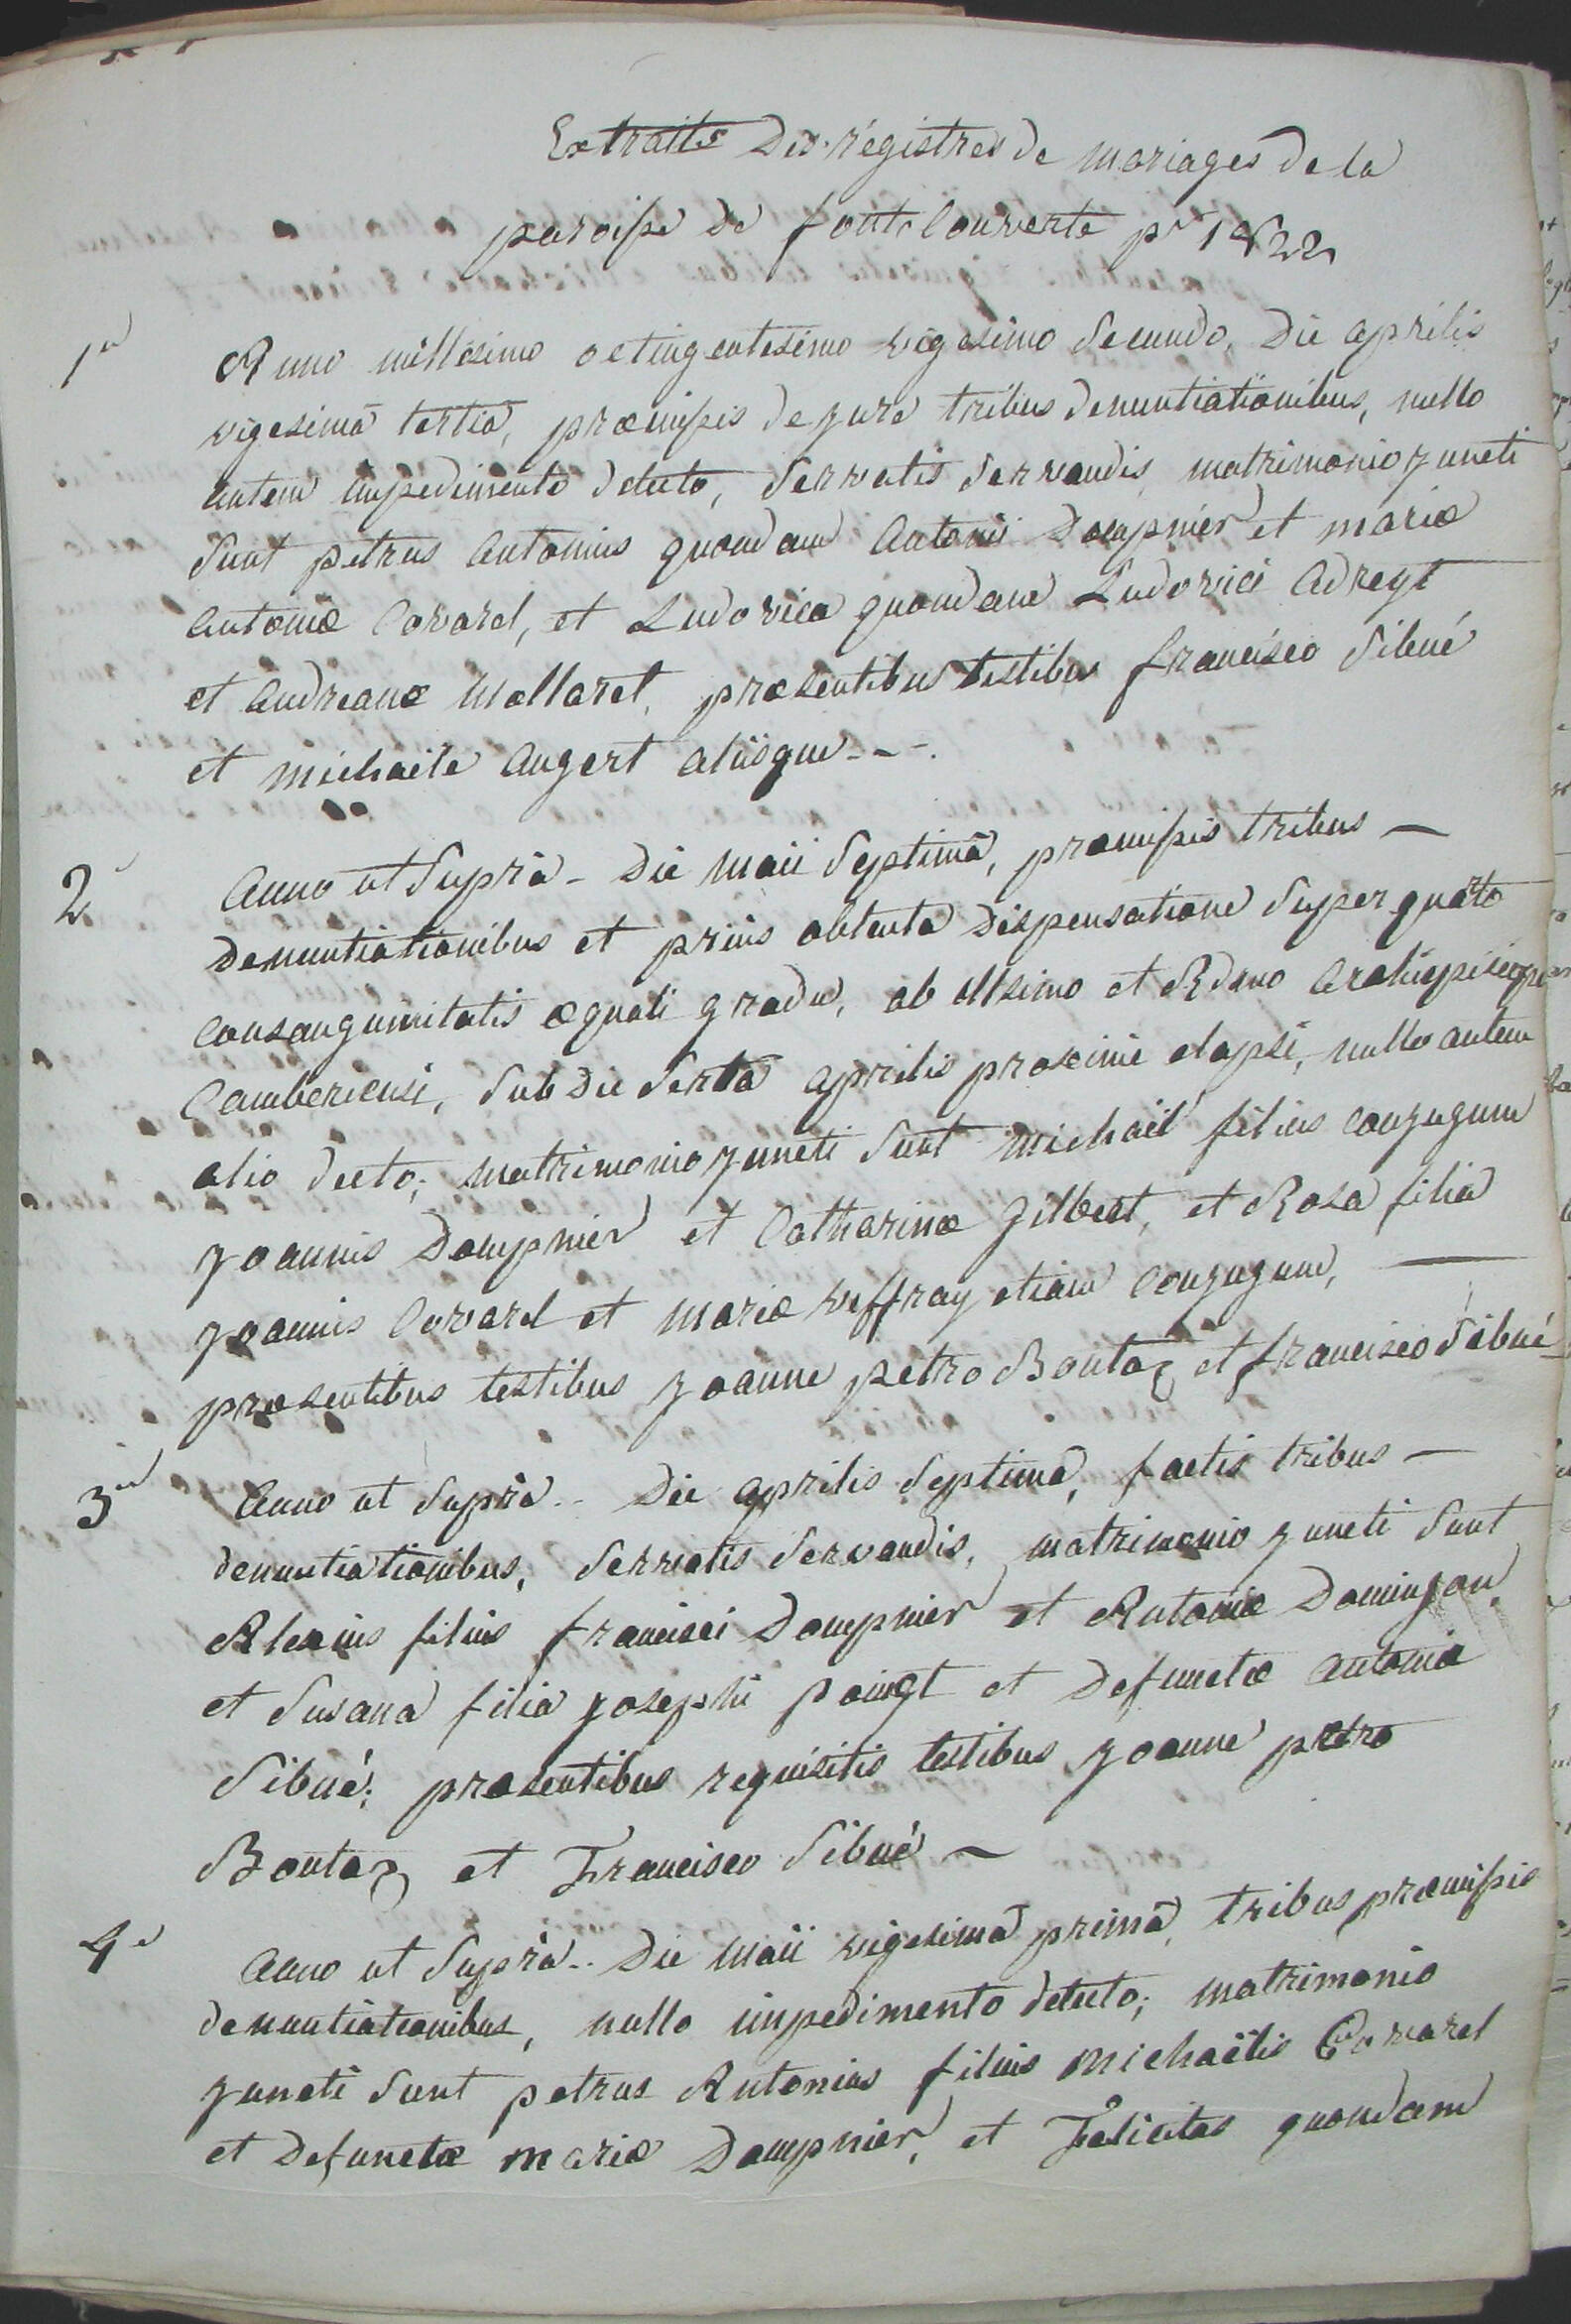 Extraits des registres de mariages de la
paroisse de fontcouverte pr 1822
1er Anno millesimo octingentesimo vigesimo secundo, die aprilis
vigesimâ tertiâ, præmissis de jure tribus denuntiationibus, nullo
autem impedimento detecto, servatis servandis, matrimonio juncti
sunt petrus antonius quondam antonii Dompnier et mariæ
antoniæ Covarel, et Ludovica quondam Ludovici adregt
et andreanæ mollaret, præsentibus testibus francisco Sibué
et michaële augert aliisque - - -.
2e Anno ut Suprà - die maii Septimâ, præmissis tribus —
denuntiationibus et priùs obtenta dispensatione super quarto
consanguinitatis æquali gradu, ab illsimo et Rdmo archiepiscopo
Camberiensi, sub die sextâ aprilis proximè elapsi, nullo autem
alio decto; matrimonio juncti sunt michaël filius conjugum
joannis Dompnier et Catharinæ gilbert, et Rosa filia
joannis Covarel et mariæ veffray etiam conjugum, —
præsentibus testibus joanne petro Bontaz et francisco Sibué
3e Anno ut Suprà - - Die aprilis Septimâ, factis tribus —
denuntiationibus, servatis servandis, matrimonio juncti sunt
Alexius filius francisci Dompnier et Antoniæ Dominjon,
et Susana filia josephi poingt et Defunctæ antoniæ
Sibué; præsentibus requisitis testibus joanne petro
Bontaz et Francisco Sibué —
4e Anno ut Suprà - - Die maii vigesimâ primâ, tribus præmissis
denuntiationibus, nullo impedimento detecto; matrimonio
juncti sunt petrus Antonius filius michaëlis Covarel
et defunctæ mariæ Dompnier, et Felicitas quondam